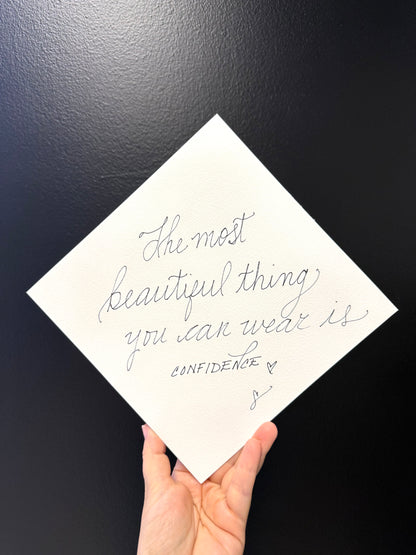 The most
beautiful thing
you can wear is
CONFIDENCE ♡